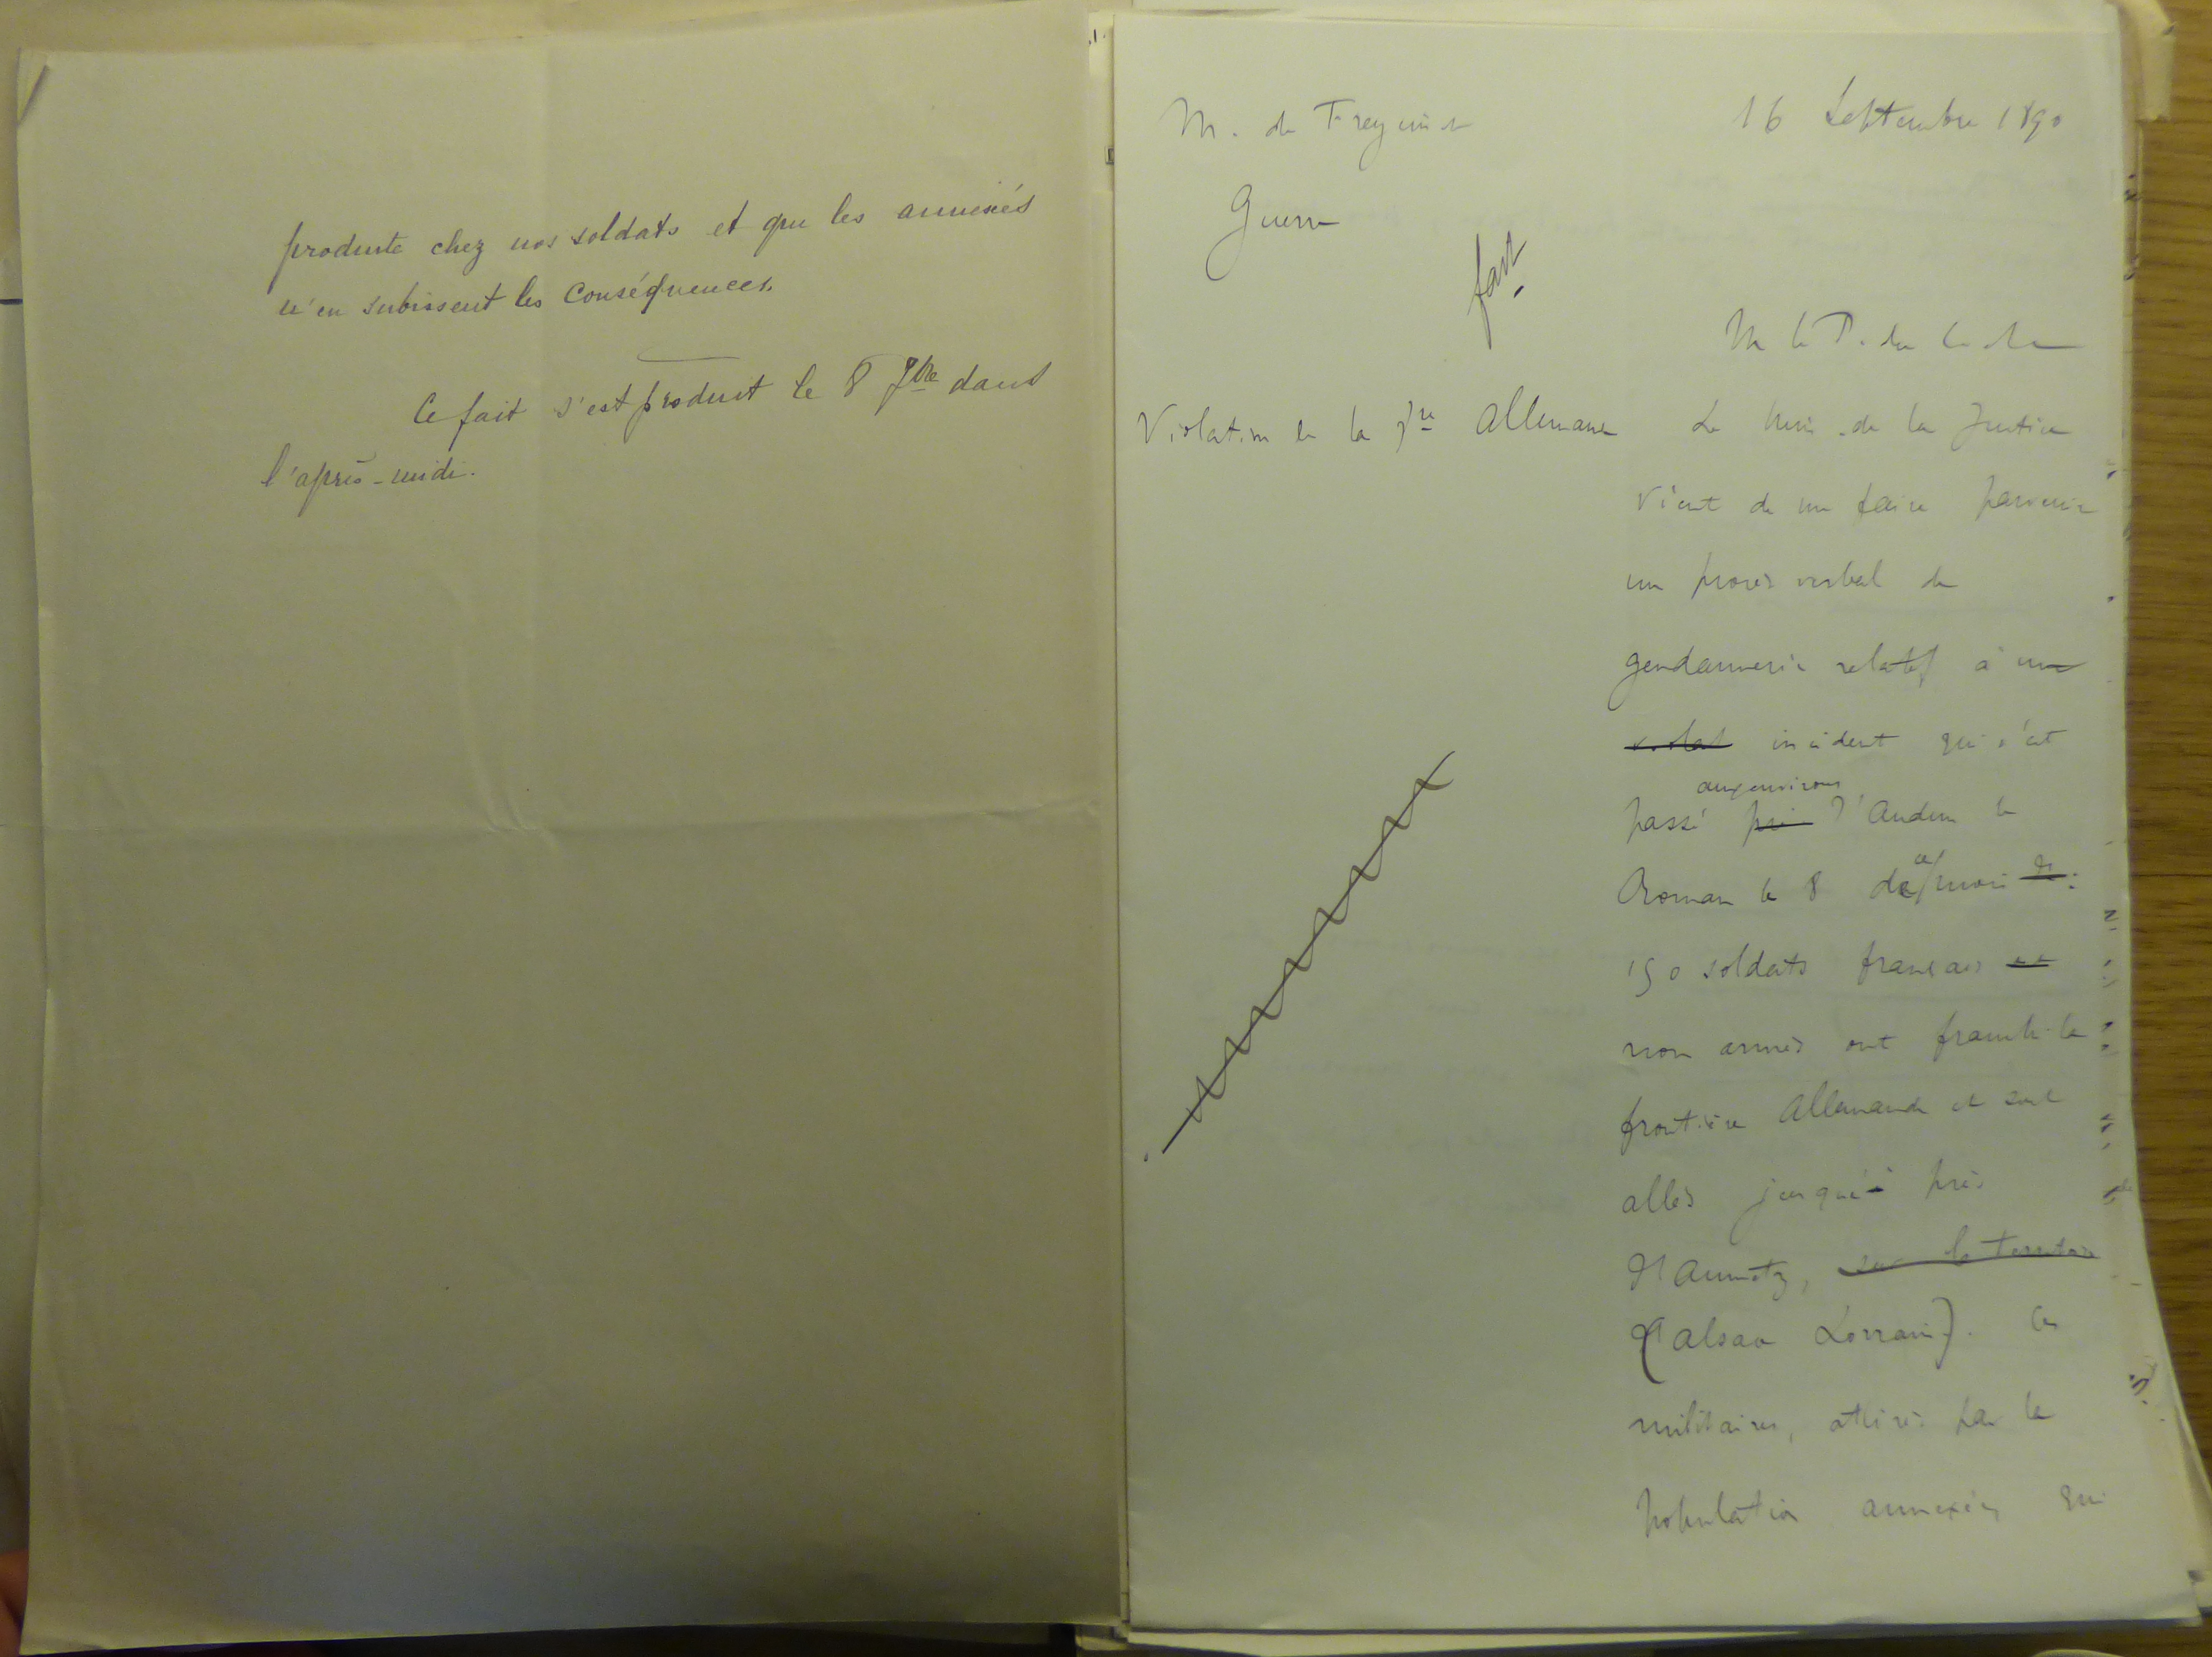 produite chez nos soldats et que les annexés
n'en subissent les conséquences.
Ce fait s'est produit le 8 7bre dans
l'après-midi.
M. de Freycinet
16 Septembre 1890
Guerre
fait
M le P. du
Violation de la fre Allemande
Le Min. de la Justice
vient de me faire parvenir
un procès verbal de
gendarmerie relatif à un
violat incident qui s'est
aux environs
passé près d'Audun le
Roman le 8 de ce mois :
150 soldats français
non armés ont franchi la
frontière Allemande et sont
allés jusque près
d'Aumetz, sur le territoire
(Alsace Lorraine). Ces
militaires, attirés par la
population annexée, qui